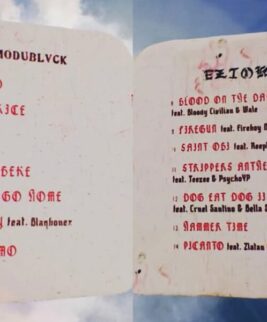 MODUBLVCK
BEKE
GO HOME
feat. Blaqbonez
MO
EZIOK
8 BLOOD ON THE DA
feat. Bloody Civilian & Wale
FIREGUN feat. Fireboy
SAINT OBI feat.
11 STRIPPERS ANTHE
feat. Teezee & PsychoYP
12 DOG EAT DOG II
feat. Cruel Santino & Bella
13 HAMMER TIME
14 PICANTO feat. Zlatan